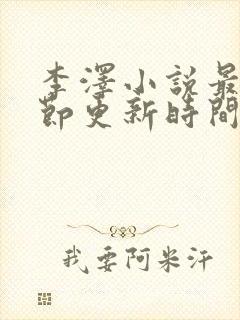 李澤小說最
節更新時間
我要阿米汗